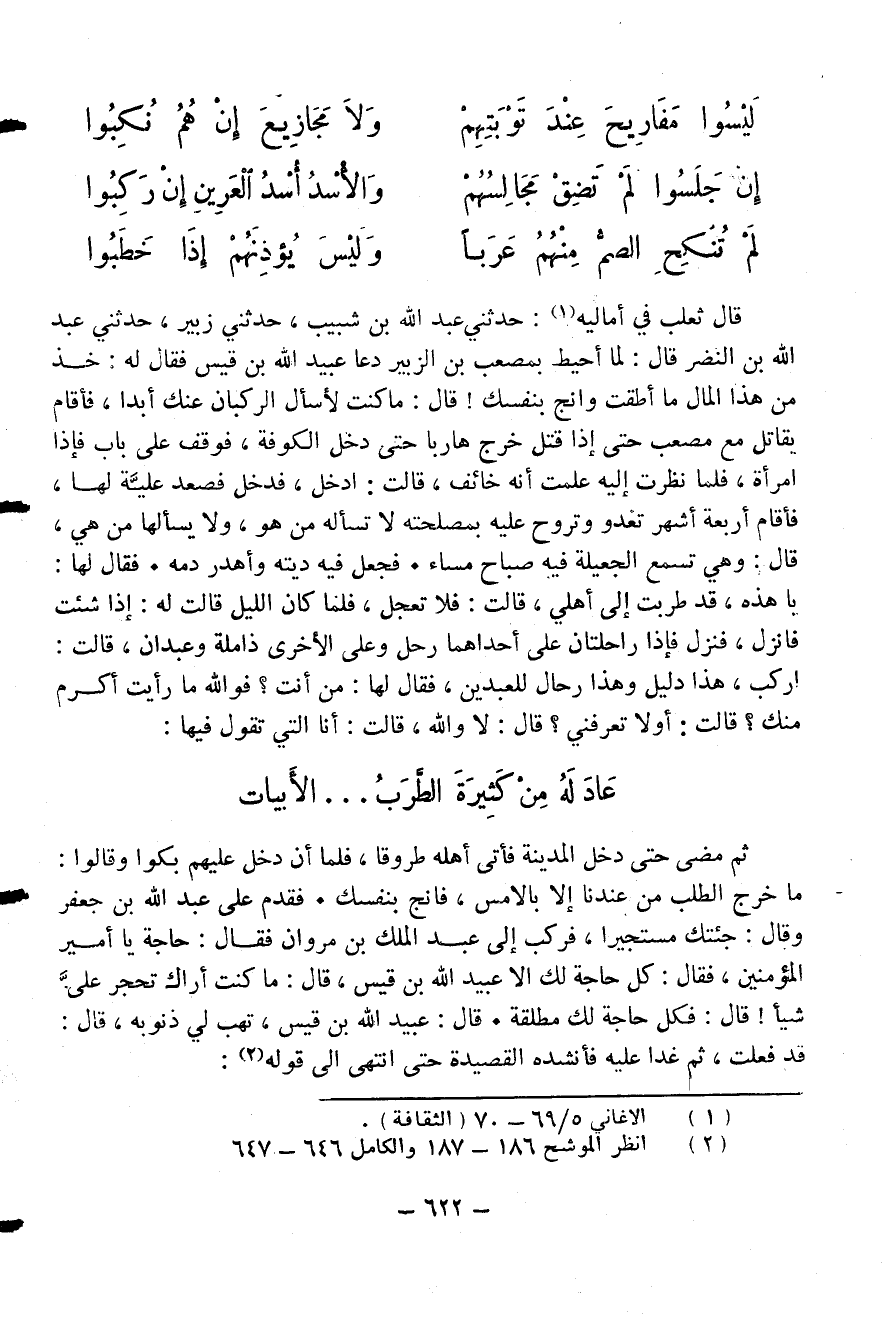 لَيْسُوا مَفَارِيحَ عِنْدَ نَوْبَتِهِمْ وَلاَ مَجَازِيعَ إِنْ هُمُ نُكِبُوا
إِن جَلَسُوا لَمْ تَضِقْ مَجَالِسُهُمْ وَالأُسْدُ أُسْدُ الْعَرِينِ إِنْ رَكِبُوا
لَمْ تُنْكَحِ الصمُّ مِنْهُمُ عَزَبـاً وَلَيْسَ يُؤذِنَهُمْ إِذَا خَطَبُوا
قال ثعلب في أماليه(١) : حدثني عبد الله بن شبيب ، حدثني زبير ، حدثني عبد
الله بن النضر قال : لما أحيط بمصعب بن الزبير دعا عبيد الله بن قيس فقال له : خـذ
من هذا المال ما أطقت وانج بنفسك ! قال : ماكنت لأسأل الركبان عنك أبدا ، فأقام
يقاتل مع مصعب حتى إذا قتل خرج هاربا حتى دخل الكوفة ، فوقف على باب فإذا
امرأة ، فلما نظرت إليه علمت أنه خائف ، قالت : ادخل ، فدخل فصعد عليَّة لهـا ،
فأقام أربعة أشهر تغدو وتروح عليه بمصلحته لا تسأله من هو ، ولا يسألها من هي ،
قال : وهي تسمع الجعيلة فيه صباح مساء ٠ فجعل فيه ديته وأهدر دمه ٠ فقال لها :
يا هذه ، قد طربت إلى أهلي ، قالت : فلا تعجل ، فلما كان الليل قالت له : إذا شئت
فانزل ، فنزل فإذا راحلتان على أحداهما رحل وعلى الأخرى ذاملة وعبدان ، قالت :
اركب ، هذا دليل وهذا رحال للعبدين ، فقال لها : من أنت ؟ فوالله ما رأيت أكـرم
منك ؟ قالت : أولا تعرفني ؟ قال : لا والله ، قالت : أنا التي تقول فيها :
عَادَ لَهُ مِنْ كَثِيرَةَ الطَّرَبُ ... الأَبيات
ثم مضى حتى دخل المدينة فأتى أهله طروقا ، فلما أن دخل عليهم بكوا وقالوا :
ما خرج الطلب من عندنا إلا بالامس ، فانج بنفسك ٠ فقدم على عبد الله بن جعفر
وقال : جئتك مستجيرا ، فركب إلى عبـد الملك بن مروان فقـال : حاجة يا أمـير
المؤمنين ، فقال : كل حاجة لك الا عبيد الله بن قيس ، قال : ما كنت أراك تحجر عليَّ
شيأ ! قال : فكل حاجة لك مطلقة ٠ قال : عبيد الله بن قيس ، تهب لي ذنوبه ، قال :
قد فعلت ، ثم غدا عليه فأنشده القصيدة حتى انتهى الى قوله(٢) :
( ١ ) الاغاني ٦٩/٥ – ٧٠ ( الثقافة ) .
( ٢ ) انظر الموشح ١٨٦ – ١٨٧ والكامل ٦٤٦ – ٦٤٧
– ٦٢٢ –